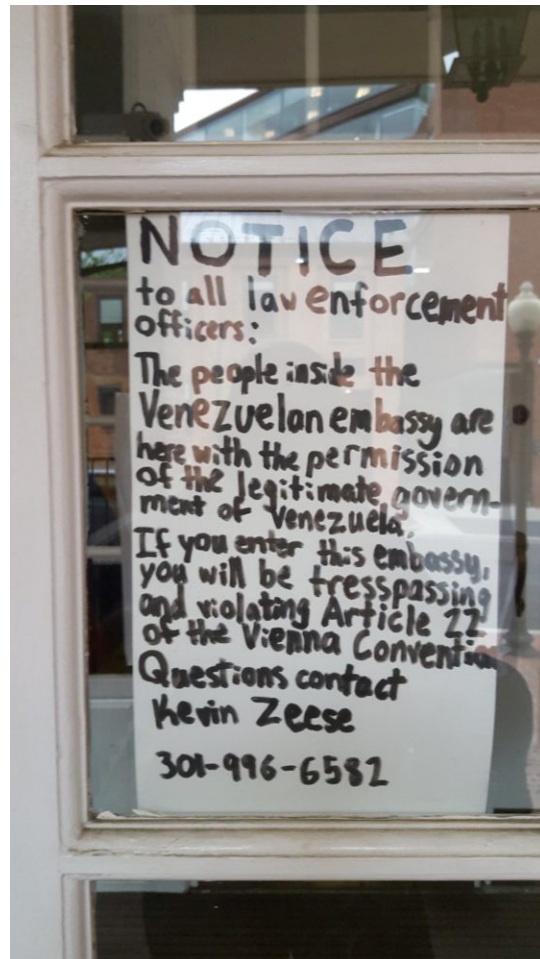 NOTICE
to all law enforcement
officers:
The people inside the
Venezuelan embassy are
here with the permission
of the legitimate govern-
ment of Venezuela.
If you enter this embassy,
you will be tresspassing
and violating Article 22
of the Vienna Convention
Questions contact
Kevin Zeese
301-996-6582